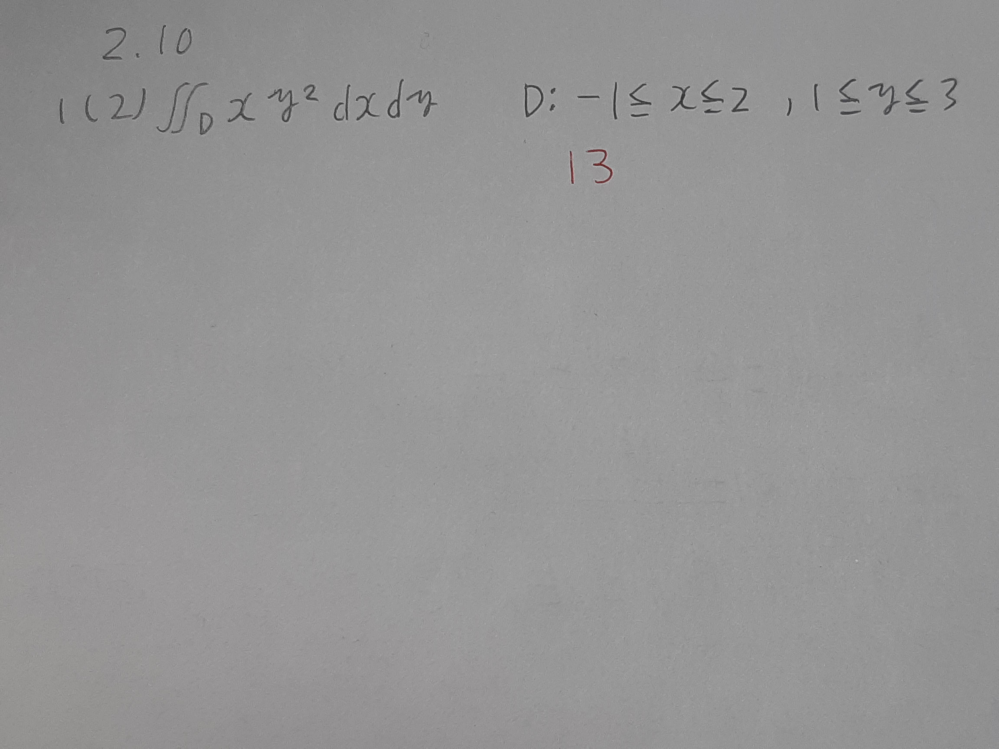 2.10
1(2) ∬_D x y² dxdy D: -1≦x≦2 , 1≦y≦3
13